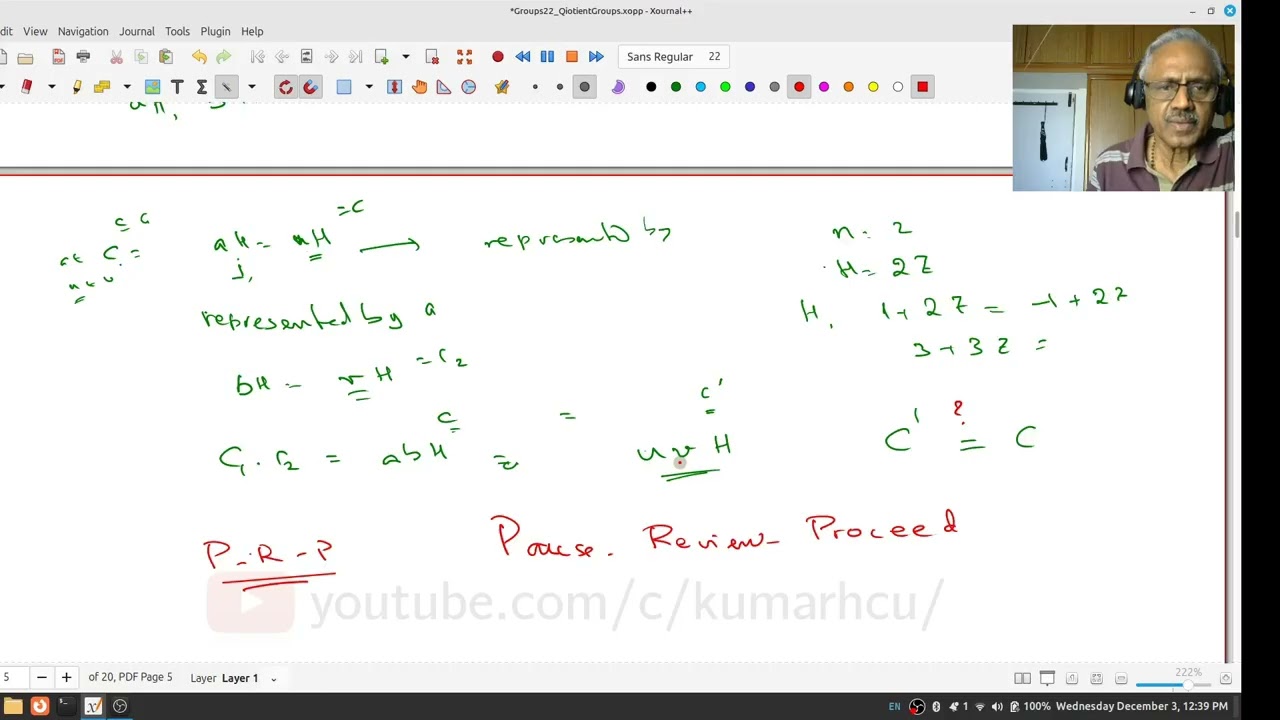 *Groups22_QiotientGroups.xopp - Xournal++
dit View Navigation Journal Tools Plugin Help
Sans Regular 22
aH = uH = C → represented by
represented by a
bH = vH = C2
C1 . C2 = abH = uvH
C = C'
n = 2
H = 2Z
H, 1 + 2Z = -1 + 2Z
3 + 3Z =
C' ?= C
P-R-P Pause. Review- Proceed
youtube.com/c/kumarhcu/
5 of 20, PDF Page 5 Layer Layer 1 222%
EN 1 100% Wednesday December 3, 12:39 PM